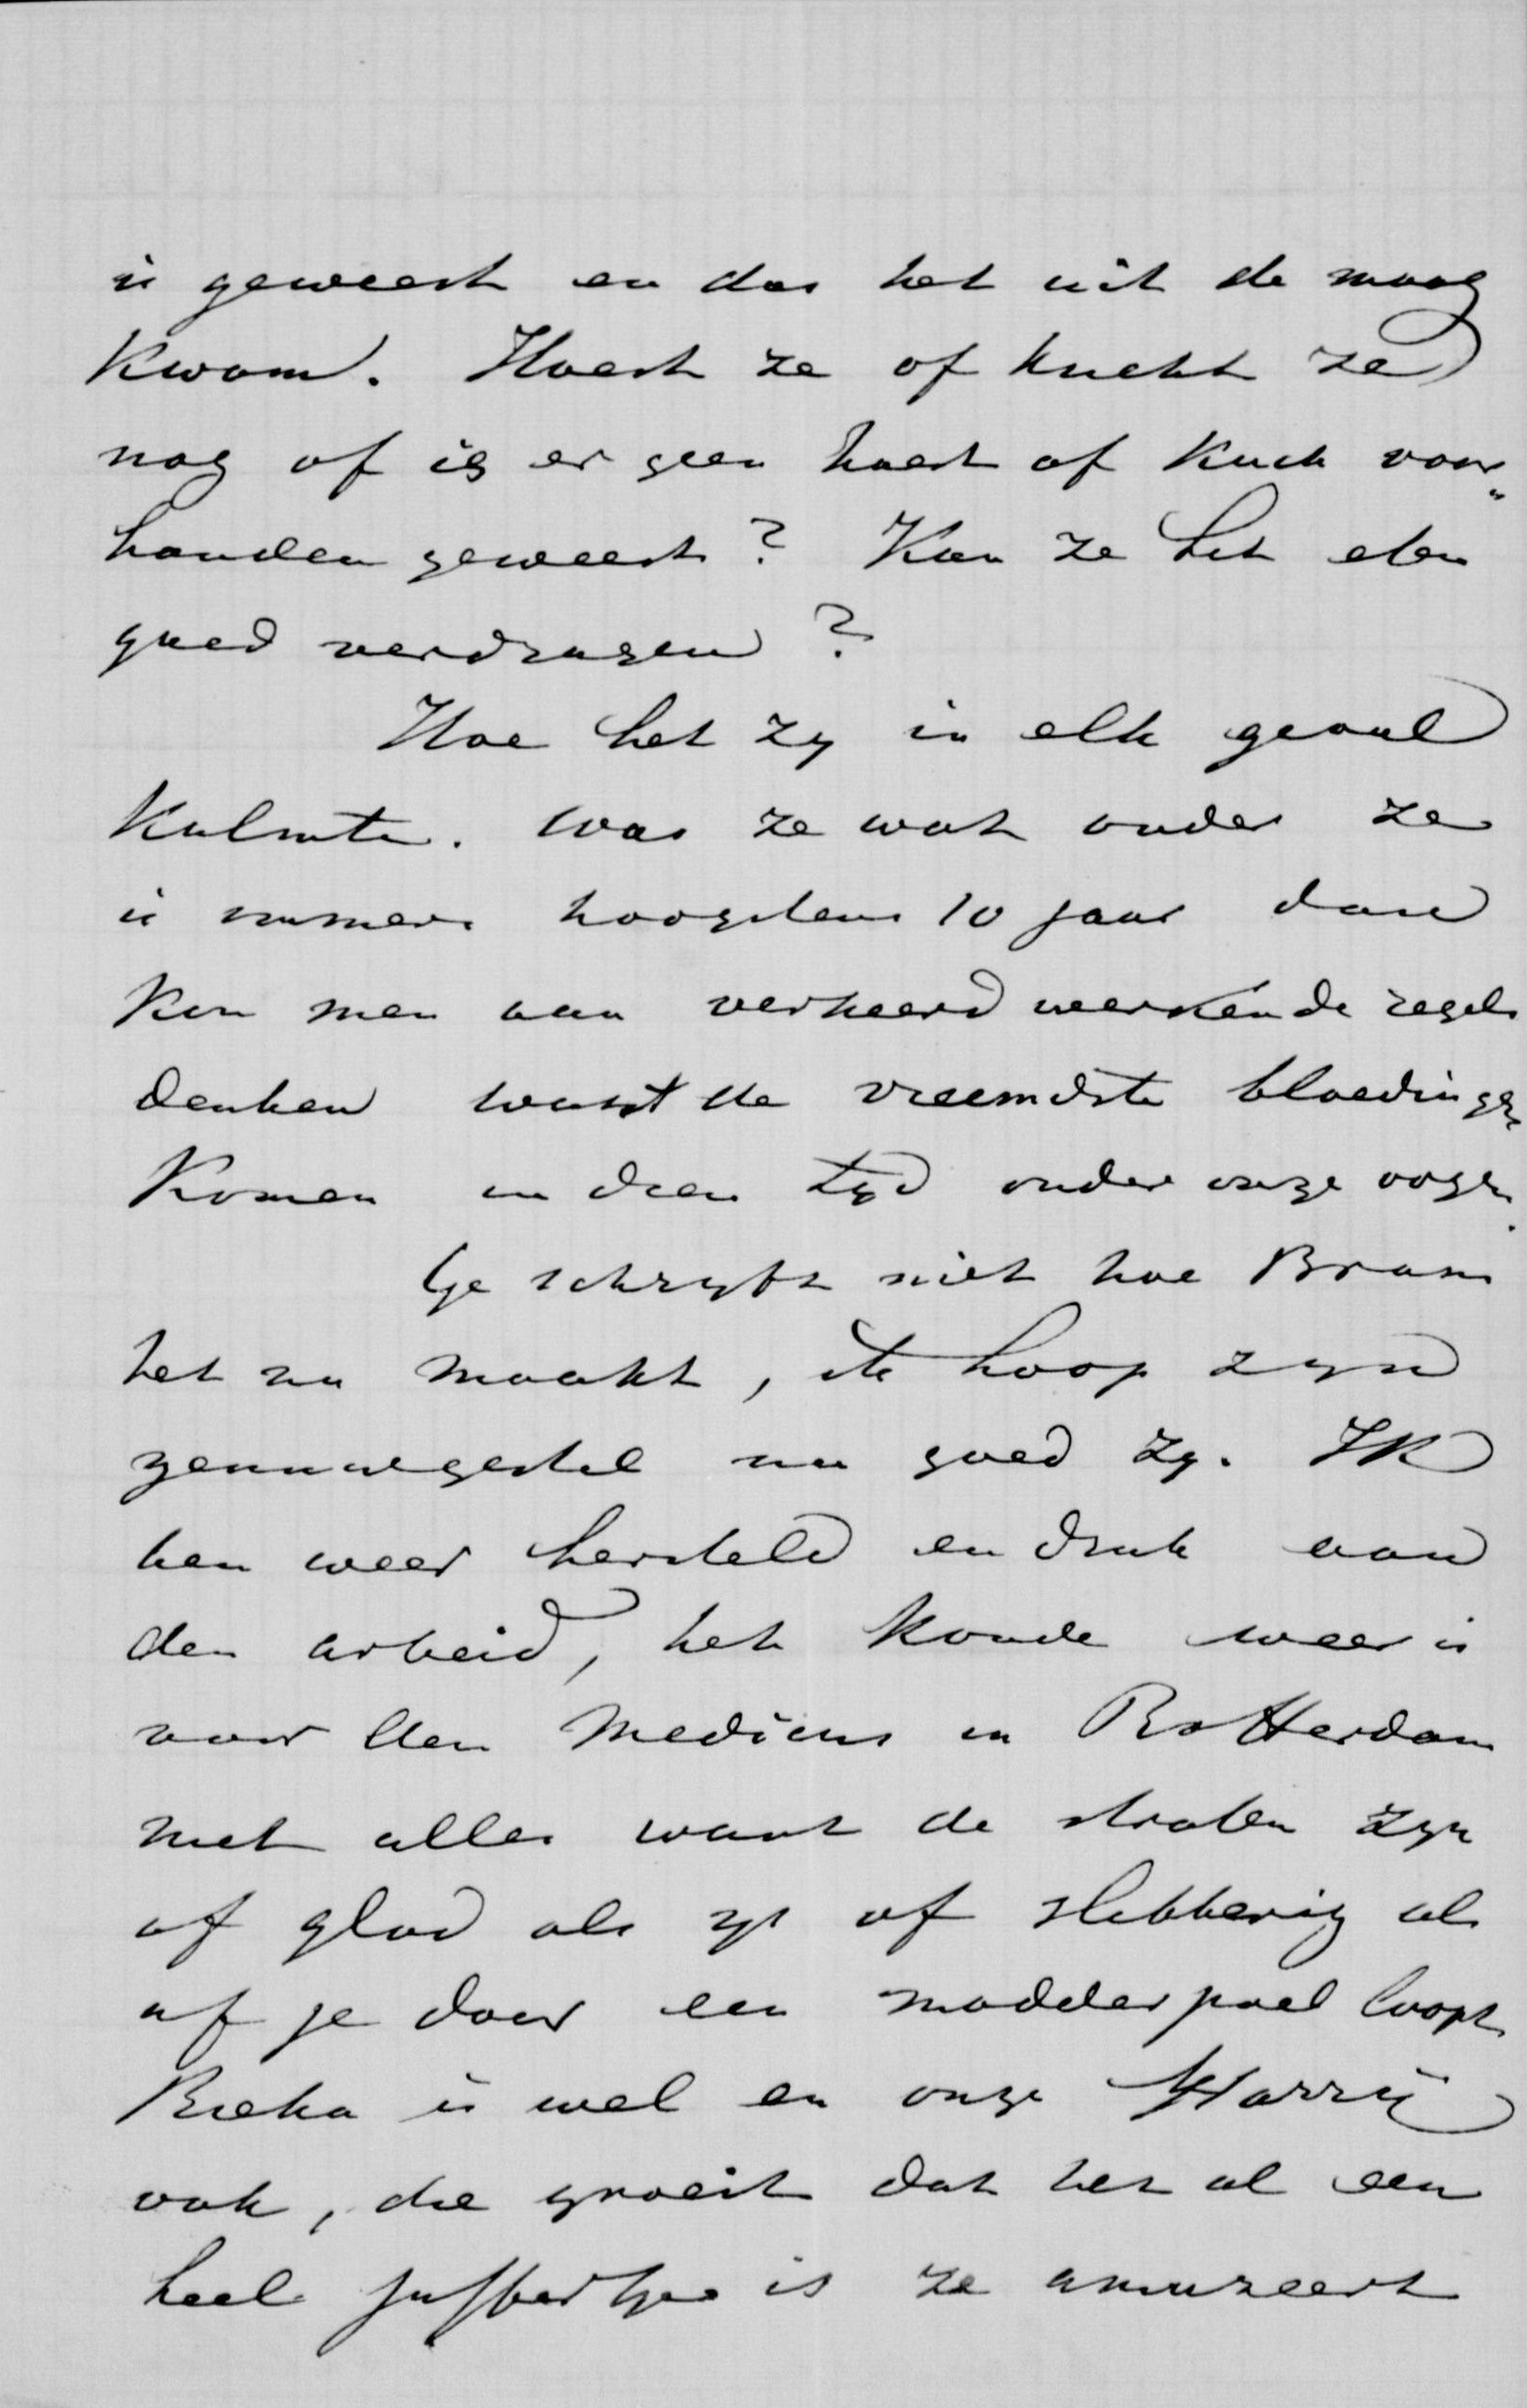 is geweest en dus het uit de maag
Kwam. Hoest ze of kucht ze
nog of is er geen hoest of kuch voor„
handen geweest? Kan ze het eten
goed verdragen?
Hoe het zy in elk geval
Kalmte. Was ze wat ouder ze
is immers hoogstens 10 jaar dan
Kon men aan verkeerd werkende regels
denken want de vreemdste bloedingen
Komen in dien tyd onder onze oogen.
Ge schryft niet hoe Bram
het nu maakt, ik hoop zyn
zenuwgestel nu goed zy. IK
ben weer hersteld en druk aan
den arbeid, het koude weer is
voor den Medicus in Rotterdam
niet alles want de straten zyn
of glad als ys of slibberig als
of je door een modderpoel loopt
is wel en onze Harry
ook, die groeit dat het al een
heel juffertje is ze amuzeert